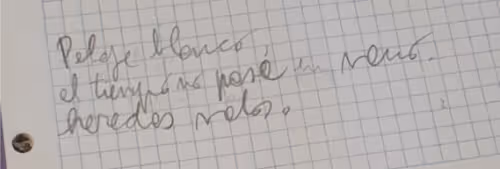 Pelaje blanco
el tiempo no pasé en vano.
heredes